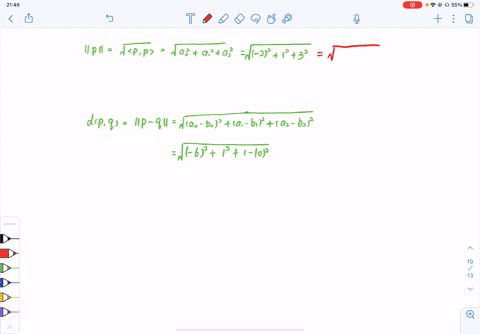 21:46 55%
||p|| = √<p, p> = √a₀² + a₁² + a₂² = √(-2)² + 1² + 3² = √
d(p, q) = ||p - q|| = √(a₀ - b₀)² + (a₁ - b₁)² + (a₂ - b₂)²
= √(-6)² + 1² + (-10)²
10
/
13